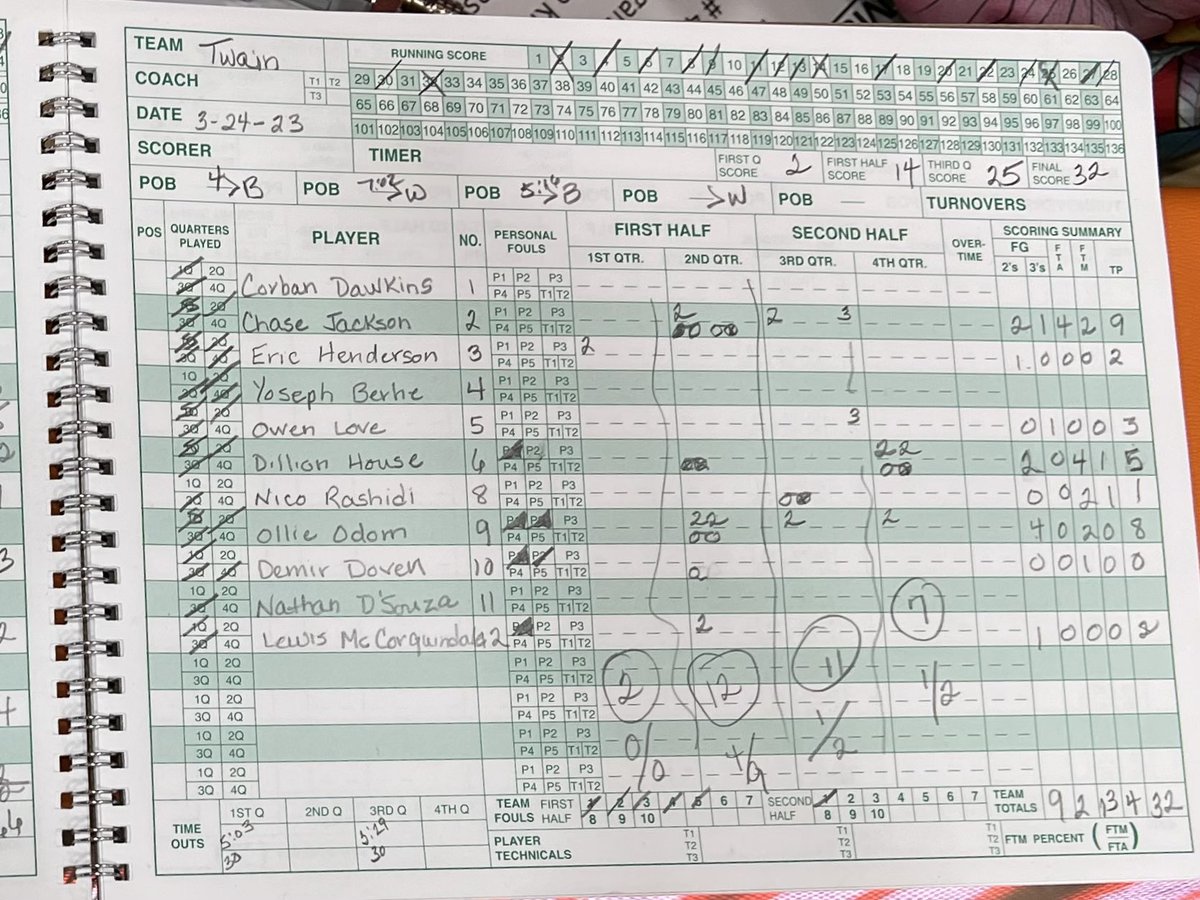 TEAM Twain
RUNNING SCORE 1 2 3 4 5 6 7 8 9 10 11 12 13 14 15 16 17 18 19 20 21 22 23 24 25 26 27 28
COACH T1 T2 T3
29 30 31 32 33 34 35 36 37 38 39 40 41 42 43 44 45 46 47 48 49 50 51 52 53 54 55 56 57 58 59 60 61 62 63 64
DATE 3-24-23
65 66 67 68 69 70 71 72 73 74 75 76 77 78 79 80 81 82 83 84 85 86 87 88 89 90 91 92 93 94 95 96 97 98 99 100
101 102 103 104 105 106 107 108 109 110 111 112 113 114 115 116 117 118 119 120 121 122 123 124 125 126 127 128 129 130 131 132 133 134 135 136
SCORER TIMER FIRST Q SCORE 2 FIRST HALF SCORE 14 THIRD Q SCORE 25 FINAL SCORE 32
POB 4>B POB 7:02>W POB 5:16>B POB ->W POB — TURNOVERS
POS QUARTERS PLAYED PLAYER NO. PERSONAL FOULS FIRST HALF SECOND HALF OVER-TIME SCORING SUMMARY
1ST QTR. 2ND QTR. 3RD QTR. 4TH QTR. FG 2's 3's FTA FTM TP
1Q 2Q 3Q 4Q Corban Dawkins 1 P1 P2 P3 P4 P5 T1 T2
1Q 2Q 3Q 4Q Chase Jackson 2 P1 P2 P3 P4 P5 T1 T2 2 00 00 2 3 2 1 4 2 9
1Q 2Q 3Q 4Q Eric Henderson 3 P1 P2 P3 P4 P5 T1 T2 2 1 0 0 0 2
1Q 2Q 3Q 4Q Yoseph Berhe 4 P1 P2 P3 P4 P5 T1 T2
1Q 2Q 3Q 4Q Owen Love 5 P1 P2 P3 P4 P5 T1 T2 3 0 1 0 0 3
1Q 2Q 3Q 4Q Dillion House 6 P1 P2 P3 P4 P5 T1 T2 00 22 00 2 0 4 1 5
1Q 2Q 3Q 4Q Nico Rashidi 8 P1 P2 P3 P4 P5 T1 T2 00 0 0 2 1 1
1Q 2Q 3Q 4Q Ollie Odom 9 P1 P2 P3 P4 P5 T1 T2 22 00 2 2 4 0 2 0 8
1Q 2Q 3Q 4Q Demir Doven 10 P1 P2 P3 P4 P5 T1 T2 0 0 0 1 0 0
1Q 2Q 3Q 4Q Nathan D'Souza 11 P1 P2 P3 P4 P5 T1 T2 7
1Q 2Q 3Q 4Q Lewis McCorquindale 12 P1 P2 P3 P4 P5 T1 T2 2 1 0 0 0 2
1Q 2Q 3Q 4Q P1 P2 P3 P4 P5 T1 T2 2 12 11
1Q 2Q 3Q 4Q P1 P2 P3 P4 P5 T1 T2 1/2
1Q 2Q 3Q 4Q P1 P2 P3 P4 P5 T1 T2 0/0 1/2
1Q 2Q 3Q 4Q P1 P2 P3 P4 P5 T1 T2
TIME OUTS 1ST Q 2ND Q 3RD Q 4TH Q
5:03 5:29
30 30
TEAM FOULS FIRST HALF 1 2 3 4 5 6 7 8 9 10 SECOND HALF 1 2 3 4 5 6 7 8 9 10 TEAM TOTALS 9 2 13 4 32
PLAYER TECHNICALS T1 T2 T3 T1 T2 T3 T1 T2 T3 FTM PERCENT (FTM/FTA)